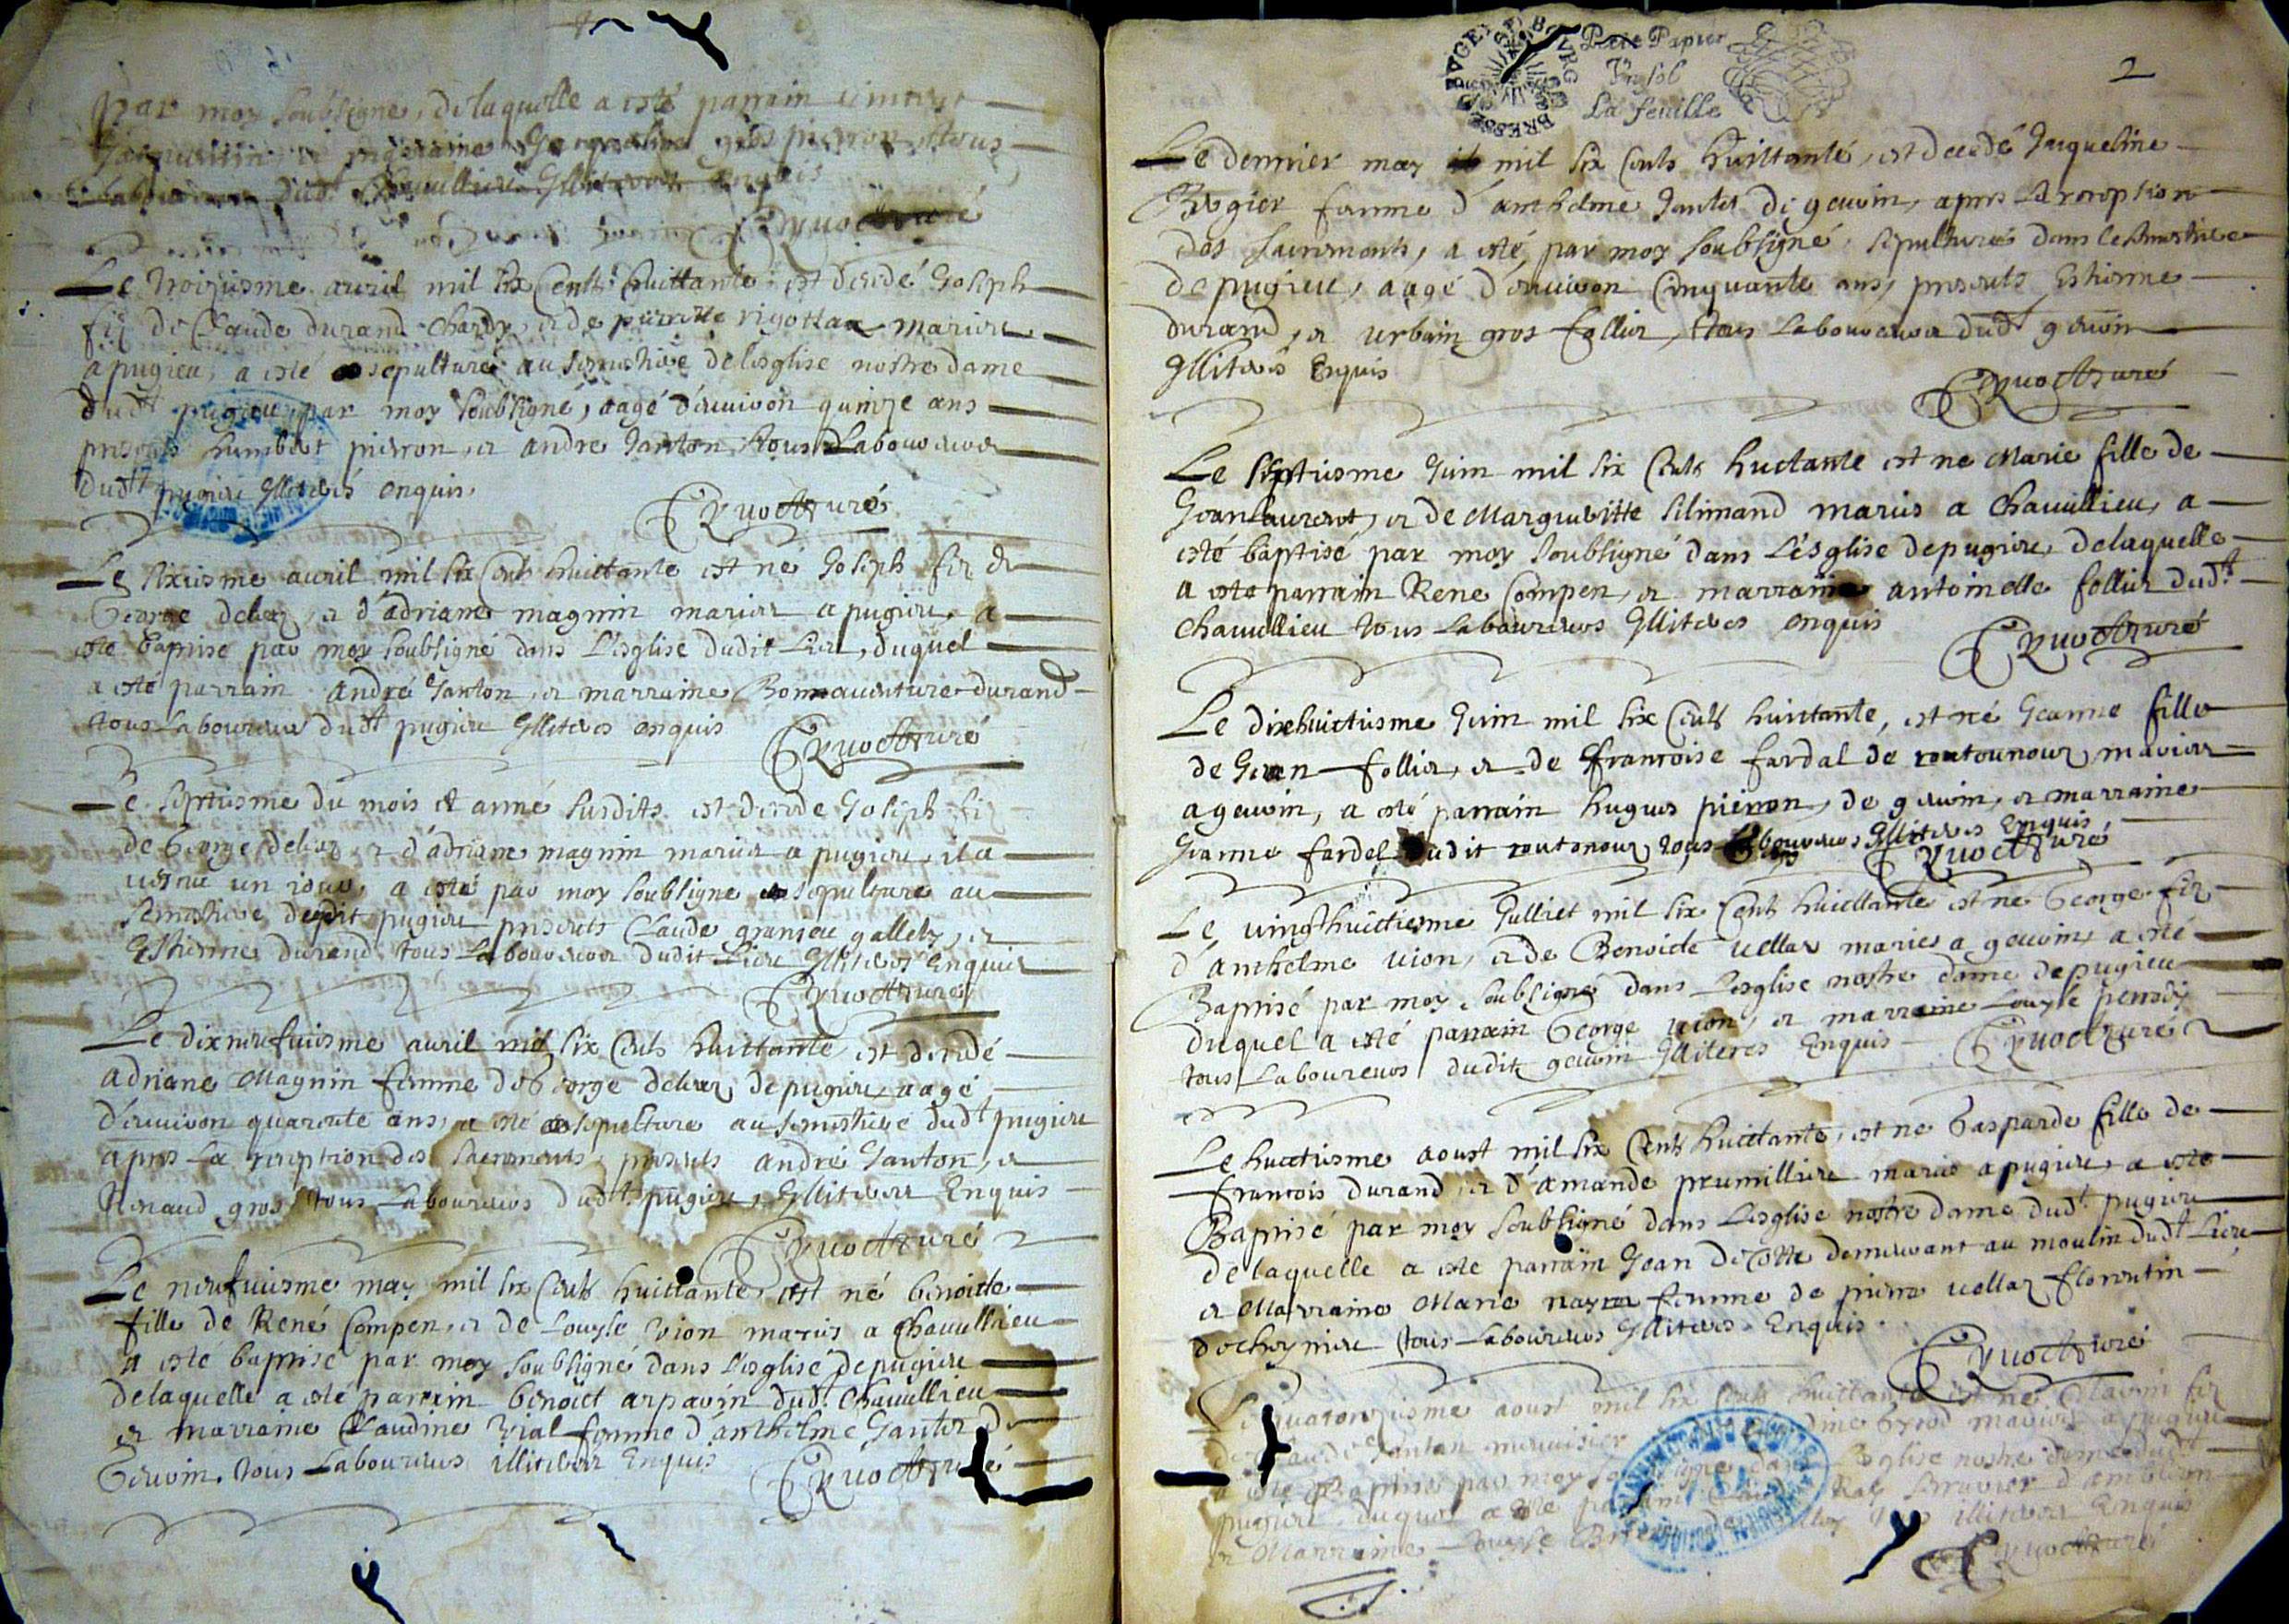 par moy soubsigné, de laquelle a esté parrain
et marraine gros pierron tous
dudt Chavillieu Illiterés enquis
Cruoct curé
Le troisiesme auril mil six Cents huittante est decedé Joseph
fiz de Claude durand chardy, et de pierrette rigottaz mariés
a pugieu, a esté sepulturé au semistiere de lesglise nostre dame
dudt pugieu par moy soubsigné, aagé d'enuiron quinze ans
presents humbert pierron, et andre Janton tous Laboureurs
dudt pugieu Illiterés enquis.
Cruoct curé
Le sixiesme auril mil six Cents huictante est né Joseph fiz de
George deliaz, et d'adriane magnin mariés a pugieu, a
esté baptisé par moy soubsigné dans L'esglise dudit Lieu, duquel
a esté parrain andré Janton, et marraine Bonnauenture durand
tous Laboureurs dudt pugieu Illiterés enquis
Cruoct curé
Le septiesme du mois et anné susdits est decede Joseph fiz
de George deliaz, et d'adriane magnin mariés a pugieu, il a
uescu un iour, a esté par moy soubsigné sepulturé au
semistiere dudit pugieu presents Claude granjeu gallety, et
Esthienne durand tous Laboureurs dudit Lieu Illiterés Enquis
Cruoct curé
Le dixneufuiesme auril mil six Cents huittante est decedé
adriane Magnin femme de George deliaz de pugieu, aagé
d'enuiron quarente ans, a esté sepulture au semistiere dudt pugieu
apres La reception des sacrements, presents andré Janton, et
Renaud gros tous Laboureurs dudt pugieu, Illiterés Enquis
Cruoct curé
Le neufuiesme may mil six Cents huittante, est né benoicte
fille de René Compen, et de Louyse vion mariés a Chauillieu
a esté baptisé par moy soubsigné dans L'esglise de pugieu
delaquelle a esté parrain benoict arpauin dudt Chauillieu
et marraine Claudine vial femme d'anthelme Jantet de
Geruoin. tous Laboureurs illiterés Enquis
Cruoct curé
BVGEY BOVRG BRESSE
Petit Papier
Vn sol
La feuille
2
Le dernier may mil six Cents huittante, est decedé Jaqueline
Brogier femme d'anthelme Jantet de geuoin, apres La reception
des sacrements, a esté, par moy soubsigné, sepulturé dans le semistiere
de pugieu, aagé d'enuiron Cinquante ans, presents Esthienne
durand, et urbain gros follier, tous Laboureurs dudt geuoin
Illiterés Enquis
Cruoct curé
Le septiesme Juin mil six Cents huctante est ne Marie fille de
Jean Laurent, et de Margueritte silimand mariés a Chauillieu, a
esté baptisé par moy soubsigné dans L'esglise de pugieu, delaquelle
a esté parrain Rene Compen, et marraine antoinette follier dudt
Chauillieu tous Laboureurs Illiterés enquis
Cruoct curé
Le dixhuictiesme Juin mil six Cents huictante, est né Jeanne fille
de Jean follier, et de françoise fardel de routounour, mariés
a geuoin, a esté parrain hugues pierron, de geuoin, et marraine
Jeanne fardel dudit routonour, tous Laboureurs Illiterés Enquis
Cruoct curé
Le uingthuictiesme Julliet mil six Cents huictante est né George fiz
d'anthelme uion, et de Benoicte uellaz mariés a geuoin, a esté
Baptisé par moy soubsigné dans L'esglise nostre dame de pugieu
duquel a esté parrain George uion, et marraine Louyse
tous Laboureurs dudit geuoin Illiterés Enquis
Cruoct curé
Le huictiesme aoust mil six Cents huictante, est né Gasparde fille de
françois durand, et d'amande prumilliere mariés a pugieu, a esté
Baptisé par moy soubsigné dans L'esglise nostre dame dudt pugieu
de laquelle a esté parrain Jean demeurant au moulin dudt Lieu
et Marraine Marie femme de pierre uellaz florentin
de cheynieu tous Laboureurs Illiterés Enquis.
Cruoct curé
Le quatorziesme aoust mil six Cents huittante est né fiz
de Claude Jantan mariés a pugieu
a esté Baptisé par moy soubsigné dans L'esglise nostre dame dudt
pugieu, duquel a esté parrain
et Marraine Louyse illiterés Enquis
Cruoct curé